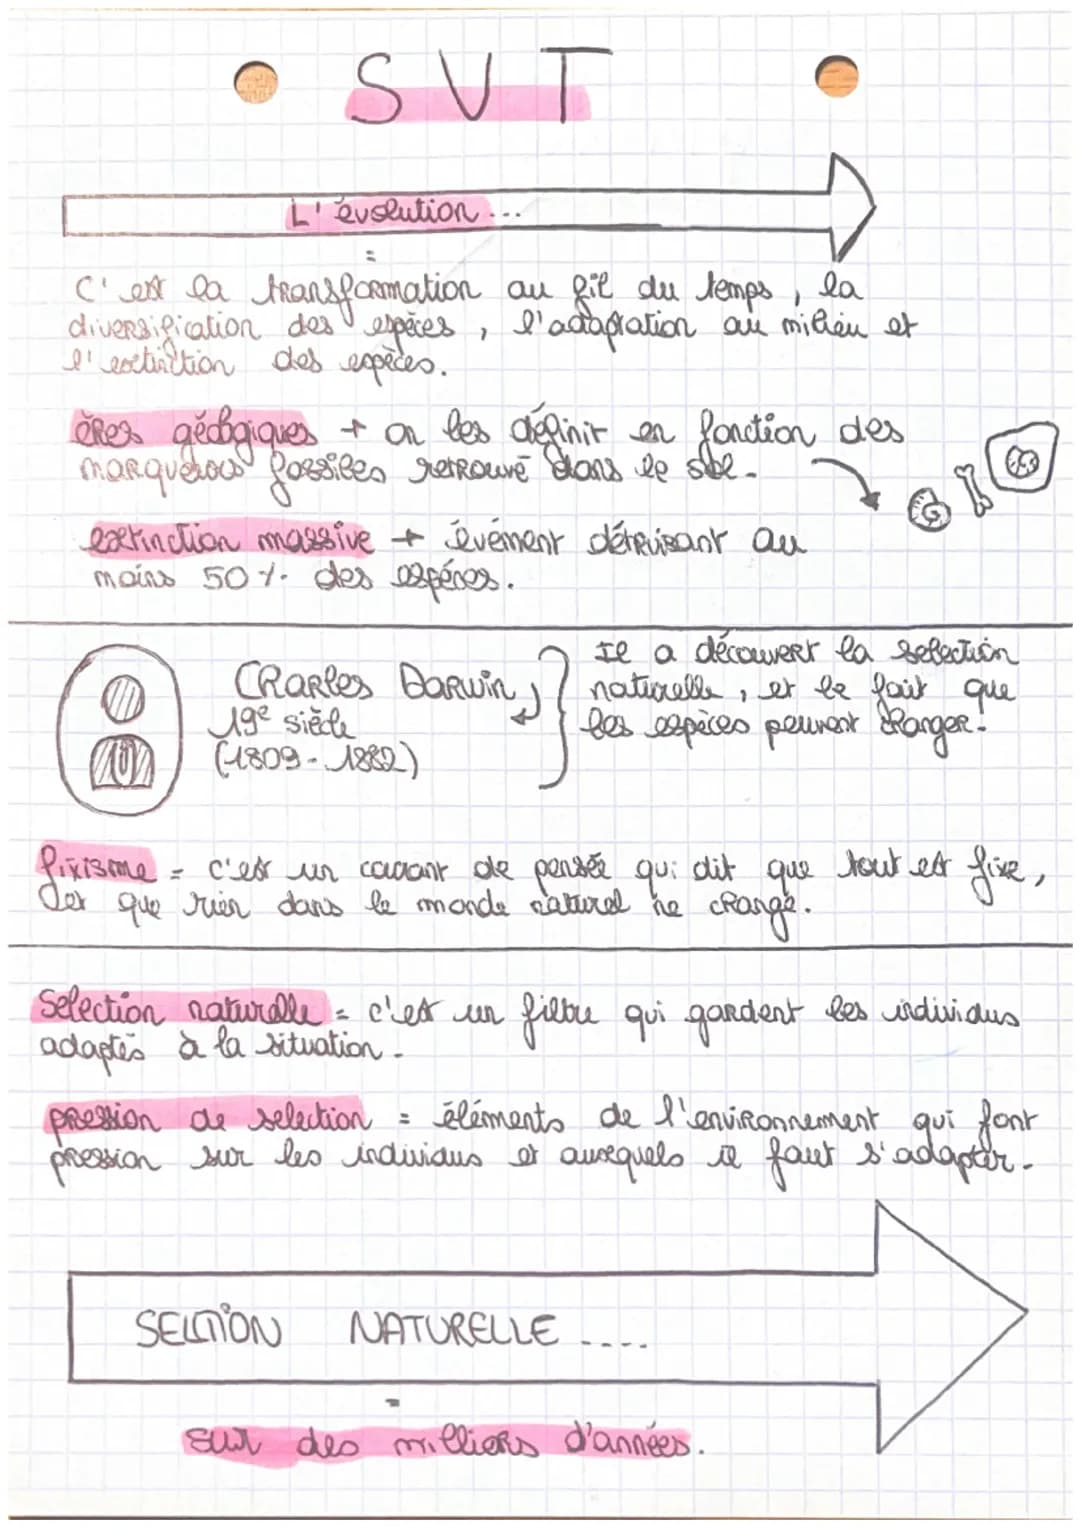 SVT
L'évolution ...
=
C'est la transformation au fil du temps, la
diversification des espèces, l'adaptation au milieu et
l'extinction des espèces.
ères géologiques → on les définir en fonction des
fossiles retrouvé dans le sol.
extinction massive → évément détruisant au
moins 50 % des espéces.
Charles Darwin,
19e siècle
(1809-1882)
Il a découvert la selection
naturelle, et le fait que
les espèces peuvent changer.
fixisme = c'est un courant de pensée qui dit que tout est fixe,
et que rien dans le monde naturel ne change.
Selection naturelle = c'est un filtre qui gardent les individus
adaptés à la situation.
pression de selection = éléments de l'environnement qui font
pression sur les individus et auxquels il faut s'adapter.
NATURELLE ....
=
sur des milliers d'années.